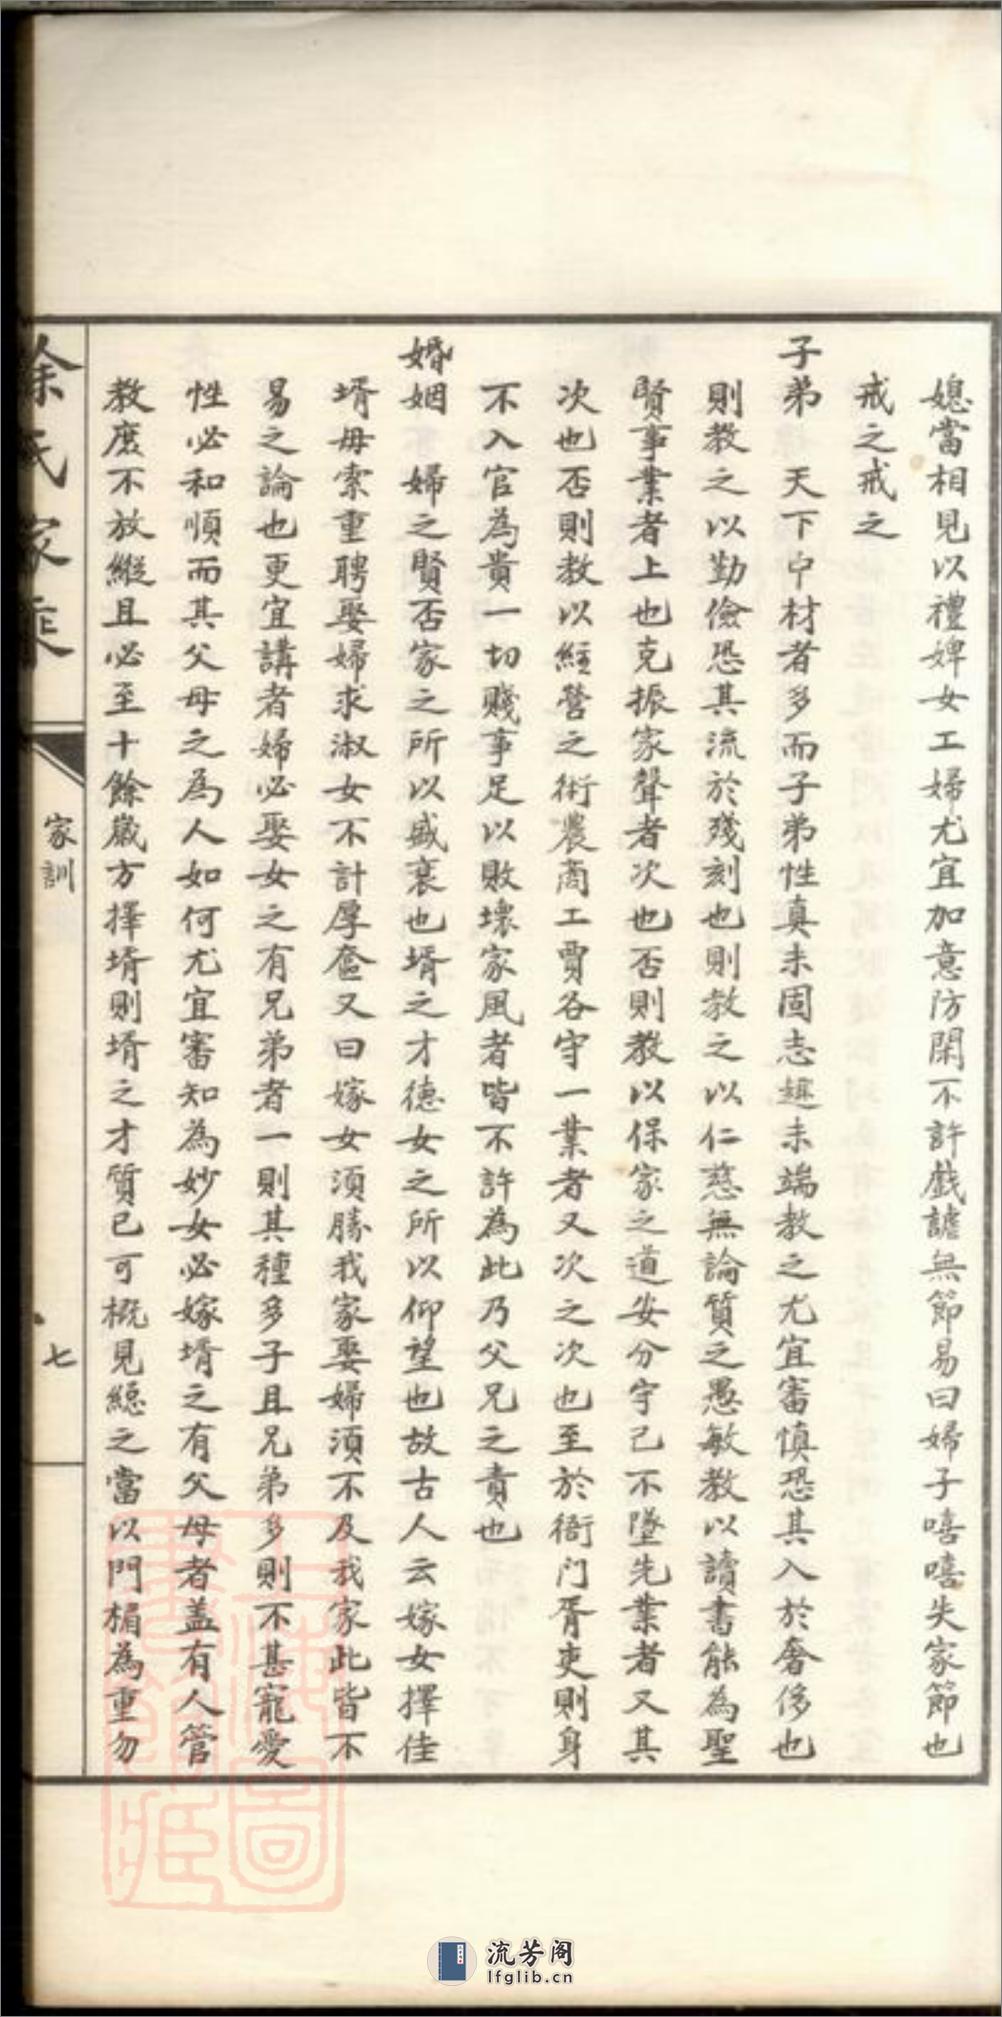 媳當相見以禮婢女工婦尤宜加意防閑不許戲謔無節易曰婦子嘻嘻失家節也
戒之戒之
子弟　天下中材者多而子弟性真未固志趣未端教之尤宜審慎恐其入於奢侈也
則教之以勤儉恐其流於殘刻也則教之以仁慈無論質之愚敏教以讀書能為聖
賢事業者上也克振家聲者次也否則教以保家之道安分守己不墜先業者又其
次也否則教以經營之術農商工賈各守一業者又次之次也至於衙门胥吏則身
不入官為貴一切賤事足以敗壞家風者皆不許為此乃父兄之責也
婚姻　婦之賢否家之所以盛衰也壻之才德女之所以仰望也故古人云嫁女擇佳
壻毋索重聘娶婦求淑女不計厚奩又曰嫁女須勝我家娶婦須不及我家此皆不
易之論也更宜講者婦必娶女之有兄弟者一則其種多子且兄弟多則不甚寵愛
性必和順而其父母之為人如何尤宜審知為妙女必嫁壻之有父母者盖有人管
教庶不放縱且必至十餘歲方擇壻則壻之才質已可概見總之當以門楣為重勿
徐氏家乘
家訓
七
流芳阁
lfglib.cn